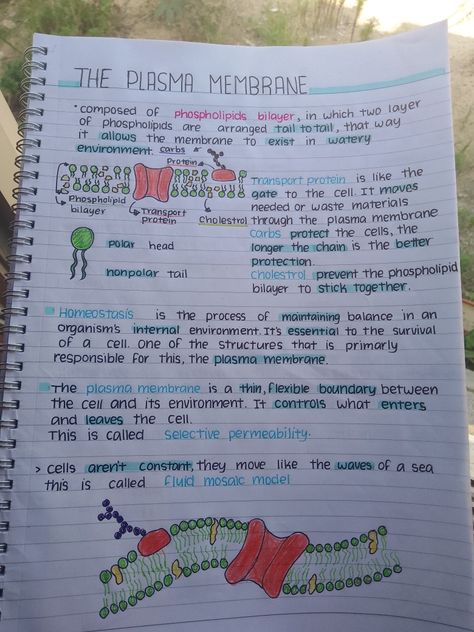 THE PLASMA MEMBRANE
• composed of phospholipids bilayer, in which two layer
of phospholipids are arranged tail to tail, that way
it allows the membrane to exist in watery
environment.
carbs
Protein
Phospholipid
bilayer
Transport
protein
Cholestrol
Transport protein is like the
gate to the cell. It moves
needed or waste materials
through the plasma membrane
carbs protect the cells, the
longer the chain is the better
protection.
cholestrol prevent the phospholipid
bilayer to stick together.
polar head
nonpolar tail
Homeostasis is the process of maintaining balance in an
organism's internal environment. It's essential to the survival
of a cell. one of the structures that is primarly
responsible for this, the plasma membrane.
The plasma membrane is a thin, flexible boundary between
the cell and its environment. It controls what enters
and leaves the cell.
This is called selective permeability.
> cells aren't constant, they move like the waves of a sea
this is called fluid mosaic model